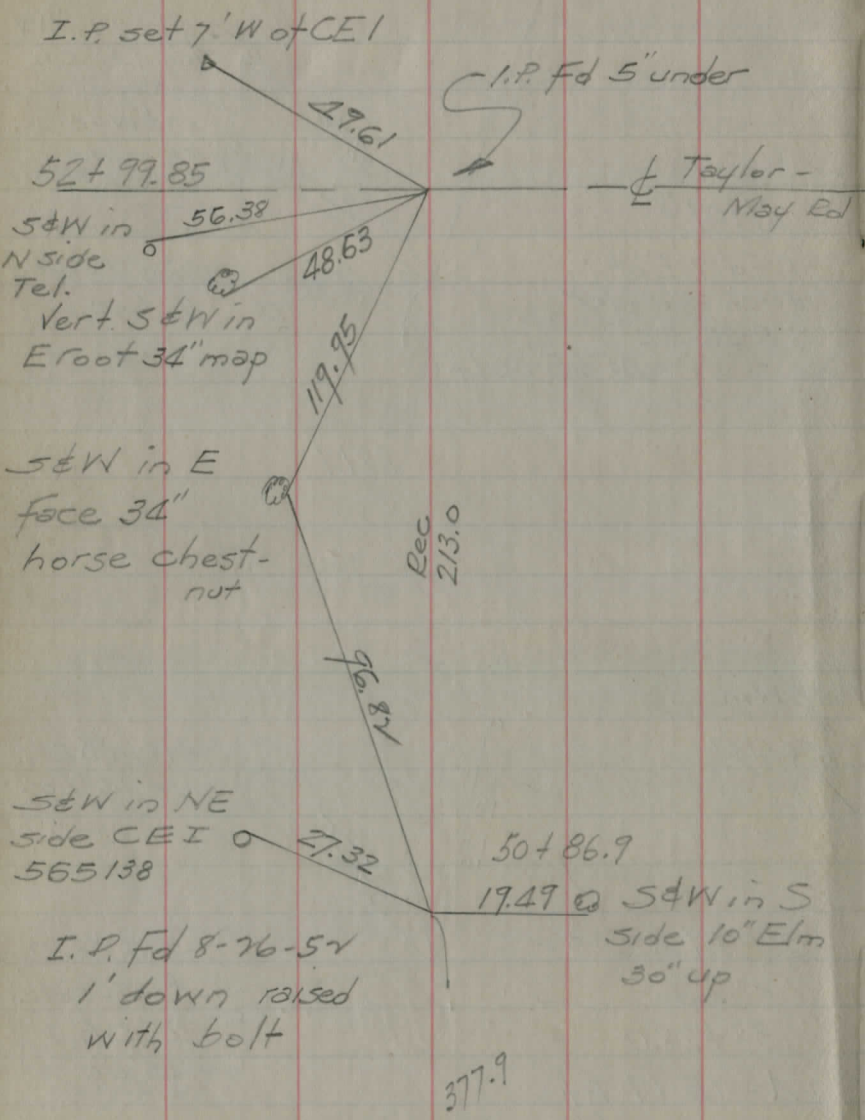 I.P. set 7' W of CEI
I.P. Fd 5" under
49.61
52+99.85
℄ Taylor-
May Rd
56.38
S&W in
N side
Tel.
48.63
Vert. S&W in
E root 34" map
119.95
S&W in E
face 34"
horse chest-
nut
Rec
213.0
96.82
S&W in NE
side CEI
565138
27.32
50+86.9
19.49
S&W in S
side 10" Elm
30" up
I.P. Fd 8-26-52
1' down raised
with bolt
377.9